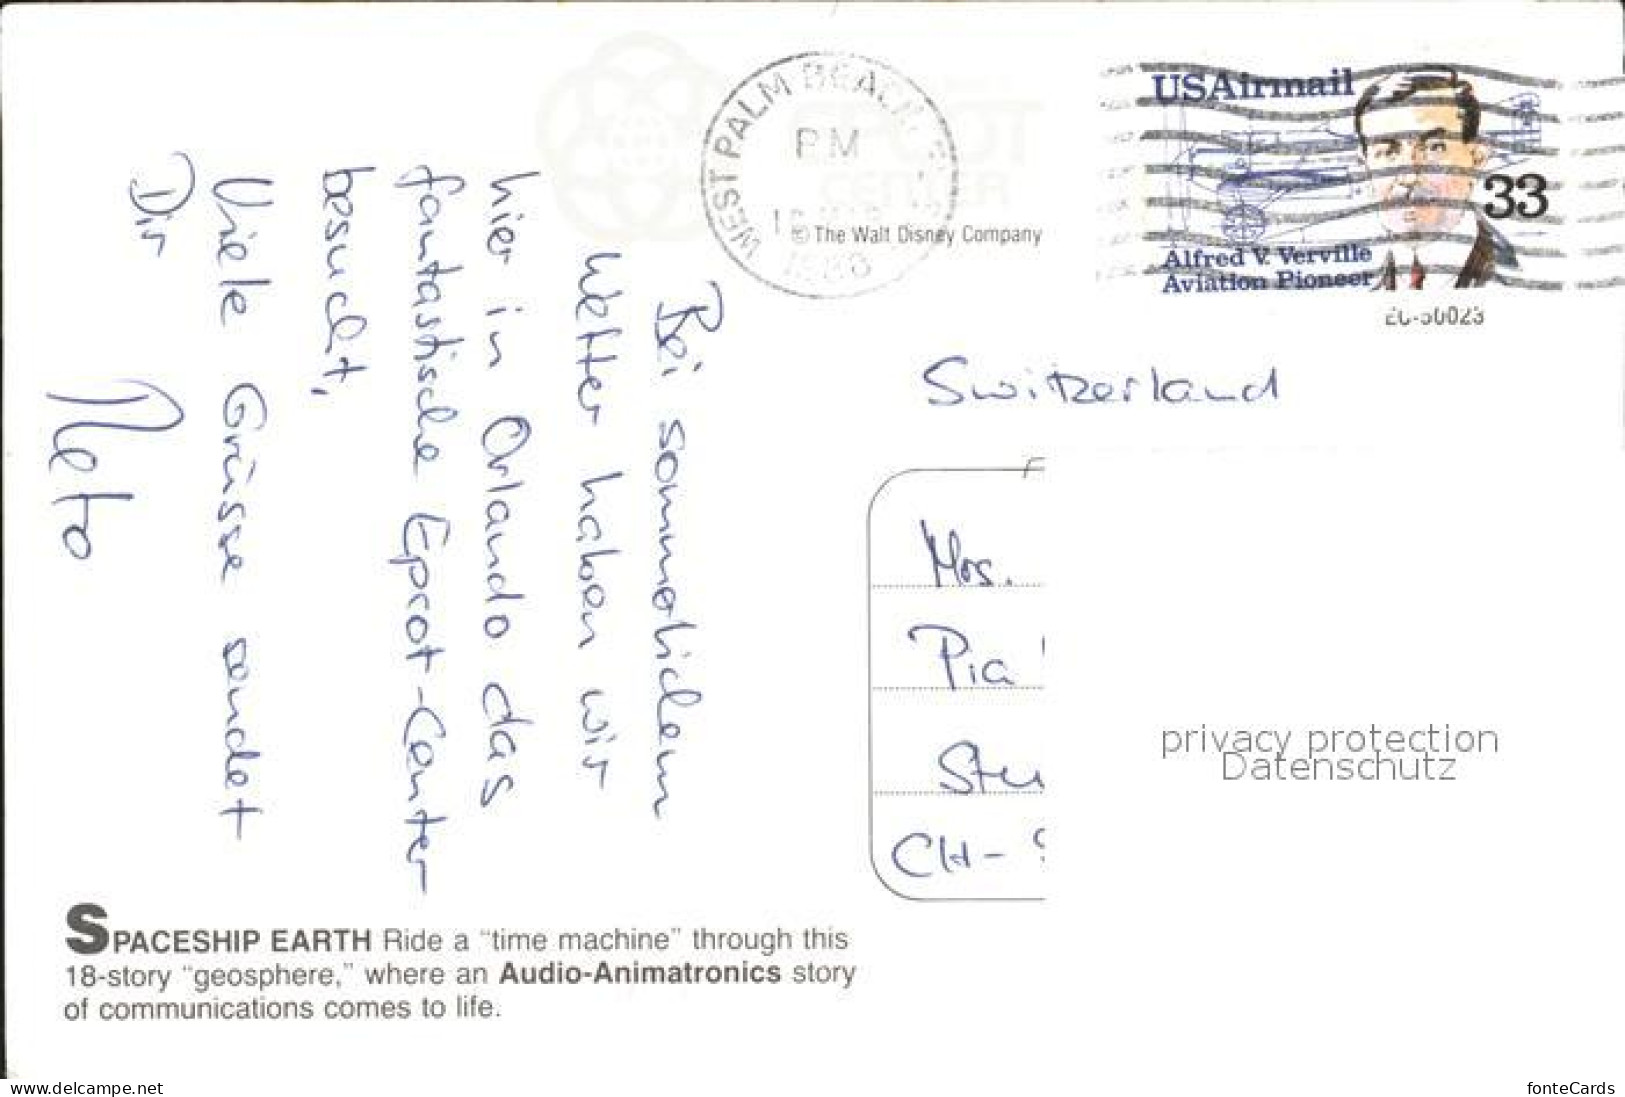 WEST PALM BEACH
PM
© The Walt Disney Company
USAirmail
33
Alfred V. Verville
Aviation Pioneer
EC-50023
Bei sommerlichem
Wetter haben wir
hier in Orlando das
fantastische Epcot-Center
besucht.
Viele Grüsse sendet
Dir
Reto
Switzerland
Mrs.
Pia
CH-
privacy protection
Datenschutz
SPACESHIP EARTH Ride a "time machine" through this
18-story "geosphere," where an Audio-Animatronics story
of communications comes to life.
www.delcampe.net
fonteCards